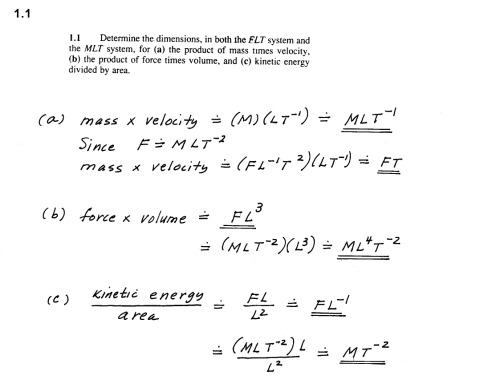 1.1
1.1 Determine the dimensions, in both the FLT system and
the MLT system, for (a) the product of mass times velocity,
(b) the product of force times volume, and (c) kinetic energy
divided by area.
(a) mass x velocity ≐ (M)(LT⁻¹) ≐ MLT⁻¹
Since F ≐ MLT⁻²
mass x velocity ≐ (FL⁻¹T²)(LT⁻¹) ≐ FT
(b) force x volume ≐ FL³
≐ (MLT⁻²)(L³) ≐ ML⁴T⁻²
(c) kinetic energy / area ≐ FL / L² ≐ FL⁻¹
≐ (MLT⁻²)L / L² ≐ MT⁻²